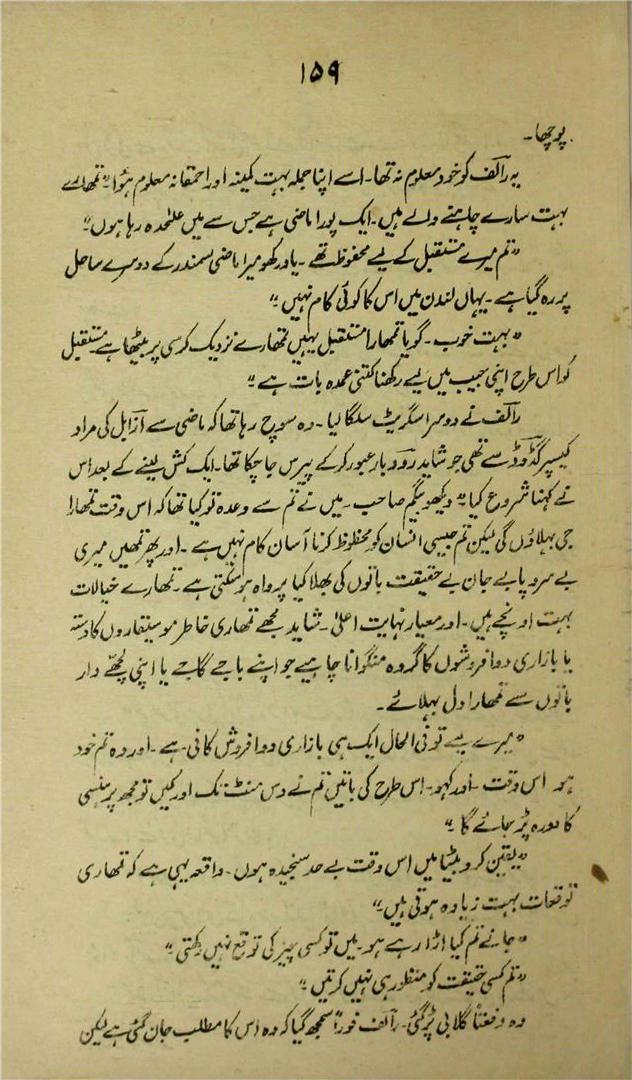 ۱۵۹
پوچھا۔
یہ رالف کو خود معلوم نہ تھا۔ اسے اپنا جملہ بہت کمینہ اور احمقانہ معلوم ہوا۔ "تمھارے
بہت سارے چاہنے والے ہیں۔ ایک پورا ماضی ہے جس سے میں علیٰحدہ رہا ہوں"
"تم میرے مستقبل کے لیے محفوظ تھے۔ یاد رکھو میرا ماضی سمندر کے دوسرے ساحل
پر رہ گیا ہے۔ یہاں لندن میں اس کا کوئی کام نہیں"
"بہت خوب۔ گویا تمھارا مستقبل یہیں تمھارے نزدیک کرسی پر بیٹھا ہے۔ مستقبل
کو اس طرح اپنی جیب میں لیے رکھنا کتنی عمدہ بات ہے"
رالف نے دوسرا سگریٹ سلگا لیا۔ وہ سوچ رہا تھا کہ ماضی سے آزابل کی مراد
کیسپر گڈوڈ سے تھی جو شاید رودبار عبور کر کے پیرس جا چکا تھا۔ ایک کش لینے کے بعد اس
نے کہنا شروع کیا "دیکھو بیگم صاحب۔ میں نے تم سے وعدہ تو کیا تھا کہ اس وقت تمھارا
جی بہلاؤں گی لیکن تم جیسی انسان کو محظوظ کرنا آسان کام نہیں ہے۔ اور پھر تمھیں میری
بے سروپا بے جان بے حقیقت باتوں کی بھلا کیا پرواہ ہو سکتی ہے۔ تمھارے خیالات
بہت اونچے ہیں۔ اور معیار نہایت اعلیٰ۔ شاید مجھے تمھاری خاطر موسیقاروں کا دستہ
یا بازاری دوا فروشوں کا گروہ منگوانا چاہیے جو اپنے باجے گاجے یا اپنی لچھے دار
باتوں سے تمھارا دل بہلائے۔
"میرے لیے تو فی الحال ایک ہی بازاری دوا فروش کافی ہے۔ اور وہ تم خود
ہو اس وقت۔ اور کہو۔ اس طرح کی باتیں تم نے دس منٹ تک اور کیں تو مجھ پر ہنسی
کا دورہ پڑ جائے گا"
"یقین کرو بیٹیا میں اس وقت بے حد سنجیدہ ہوں۔ واقعہ یہی ہے کہ تمھاری
توقعات بہت زیادہ ہوتی ہیں"
"جانے تم کیا اڑا رہے ہو۔ میں تو کسی چیز کی توقع نہیں رکھتی"
"تم کسی حقیقت کو منظور ہی نہیں کرتیں"
وہ دفعتاً گلابی پڑ گئی۔ رالف فوراً سمجھ گیا کہ وہ اس کا مطلب جان گئی ہے لیکن